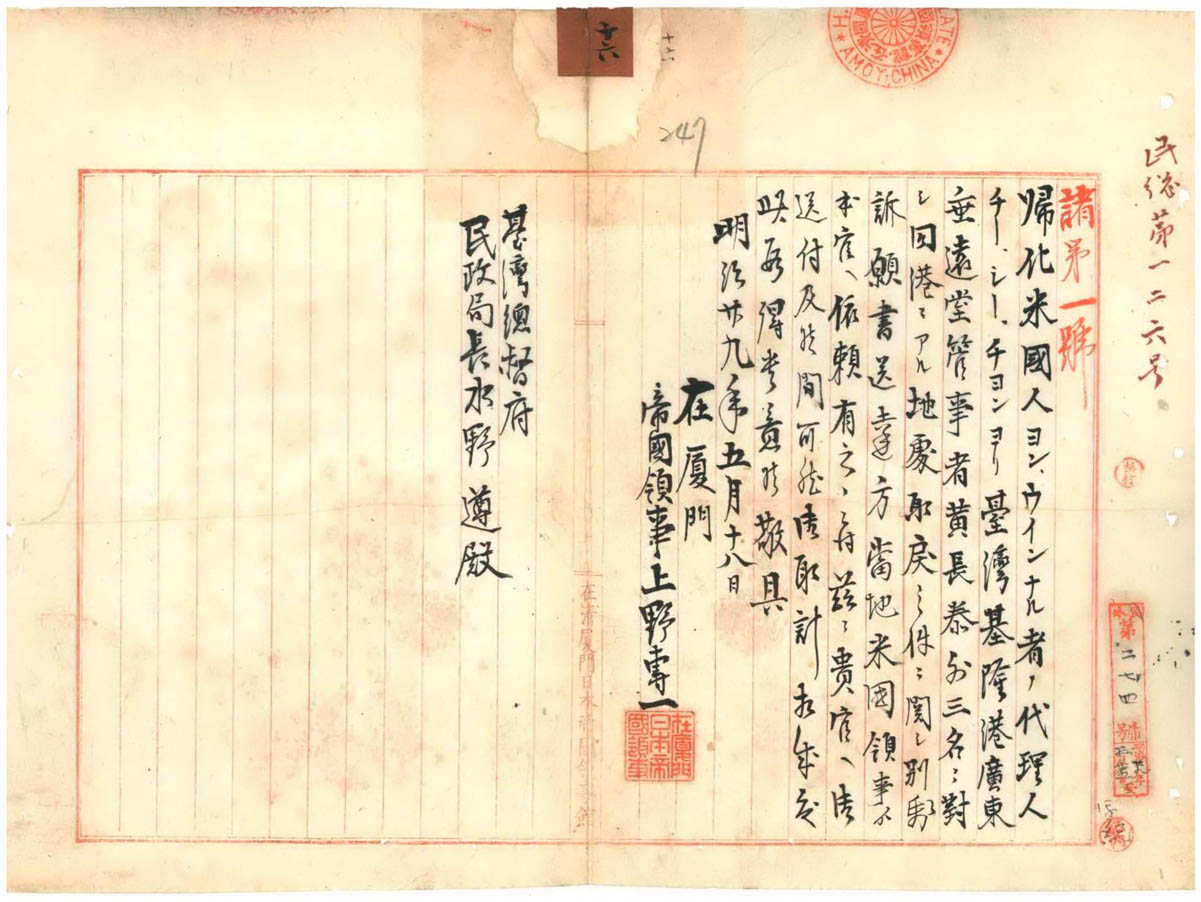 民総第一二六号
諸第一號
帰化米國人ヨン、ウインナル者ノ代理人
チー、シー、チヨンヨリ臺灣基隆港廣東
垂遠堂管事者黄長泰外三名ニ對
シ同港ニアル地處取戻シ件ニ関シ別紙
訴願書送達方當地米國領事ヨリ
本官ヘ依頼有之ニ付茲ニ貴官ヘ御
送付及候間可然御取計相成度
此段得貴意候敬具
明治廿九年五月十八日
在厦門
帝國領事上野專一
在厦門
日本帝
國領事
臺灣總督府
民政局長水野遵殿
十六
十六
247
AMOY, CHINA
在清厦門日本帝國領事館
第二七四號